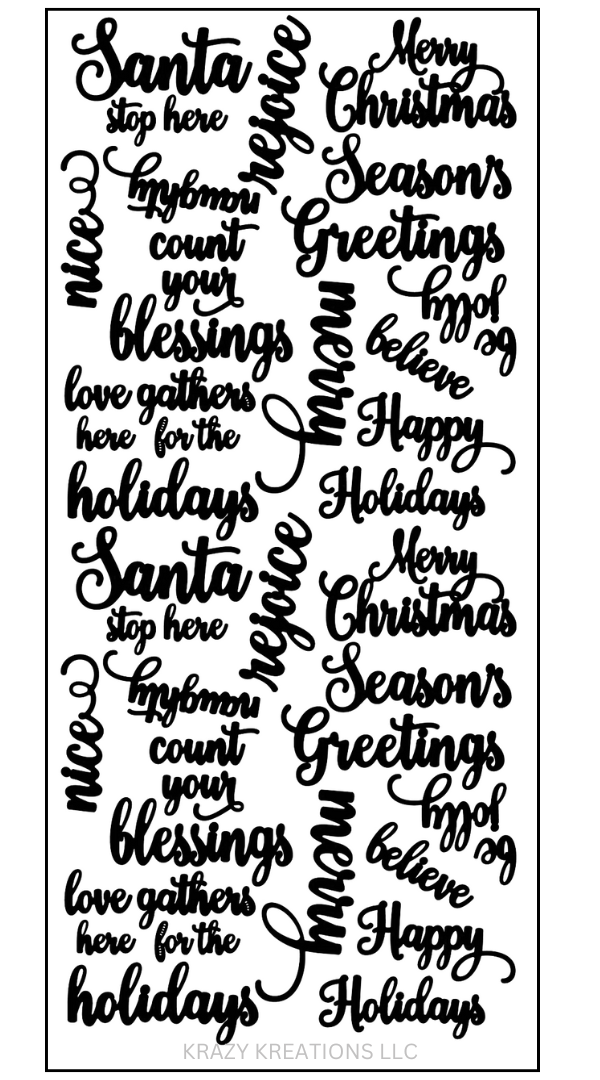 Santa
stop here
rejoice
Merry
Christmas
nice
naughty
Season's
Greetings
count
your
blessings
merry
be
jolly
believe
love gathers
here for the
holidays
Happy
Holidays
Santa
stop here
rejoice
Merry
Christmas
nice
naughty
Season's
Greetings
count
your
blessings
merry
be
jolly
believe
love gathers
here for the
holidays
Happy
Holidays
KRAZY KREATIONS LLC